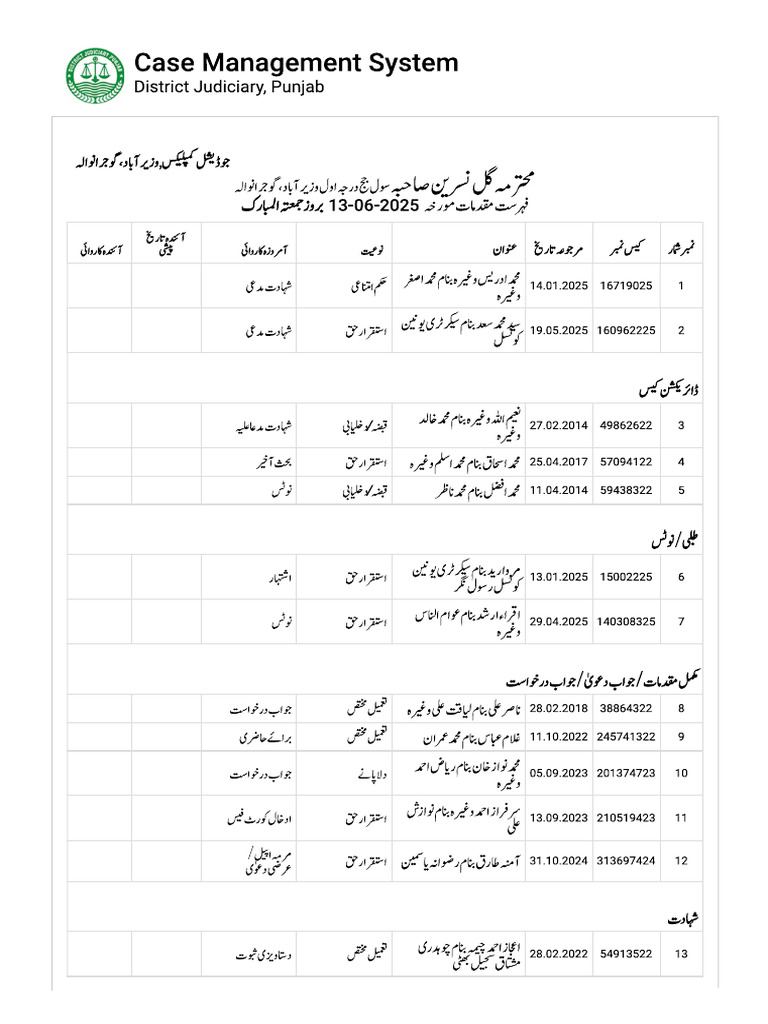 DISTRICT JUDICIARY PUNJAB
Case Management System
District Judiciary, Punjab
جوڈیشل کمپلیکس,وزیرآباد،گوجرانوالہ
محترمہ گل نسرین صاحبہ سول جج درجہ اول وزیرآباد،گوجرانوالہ
فہرست مقدمات مورخہ 13-06-2025 بروزجمعتہ المبارک
نمبر شمار کیس نمبر مرجوعہ تاریخ عنوان نوعیت آمروزہ کاروائی آئندہ تاریخ پیشی آئندہ کاروائی
1 16719025 14.01.2025 محمد ادریس وغیرہ بنام محمد اصغر وغیرہ حکم امتناعی شہادت مدعی
2 160962225 19.05.2025 سید محمد سعد بنام سیکرٹری یونین کونسل استقرار حق شہادت مدعی
ڈائریکشن کیس
3 49862622 27.02.2014 نعیم اللہ وغیرہ بنام محمد خالد وغیرہ قبضہ/دخلیابی شہادت مدعاعلیہ
4 57094122 25.04.2017 محمد اسحاق بنام محمد اسلم وغیرہ استقرار حق بحث آخیر
5 59438322 11.04.2014 محمد افضل بنام محمد ناظر قبضہ/دخلیابی نوٹس
طلبی/نوٹس
6 15002225 13.01.2025 مروارید بنام سیکرٹری یونین کونسل رسول نگر استقرار حق اشتہار
7 140308325 29.04.2025 اقراء ارشد بنام عوام الناس وغیرہ استقرار حق نوٹس
مکمل مقدمات/جواب دعویٰ/جواب درخواست
8 38864322 28.02.2018 ناصر علی بنام لیاقت علی وغیرہ تعمیل مختص جواب درخواست
9 245741322 11.10.2022 غلام عباس بنام محمد عمران تعمیل مختص برائے حاضری
10 201374723 05.09.2023 محمد نواز خان بنام ریاض احمد وغیرہ دلا پانے جواب درخواست
11 210519423 13.09.2023 سرفراز احمد وغیرہ بنام نوازش علی استقرار حق ادخال کورٹ فیس
12 313697424 31.10.2024 آمنہ طارق بنام رضوانہ یاسمین استقرار حق مرمہ اپیل/ عرضی دعوٰی
شہادت
13 54913522 28.02.2022 اعجاز احمد چیمہ بنام چوہدری مشتاق سجیل بھٹی تعمیل مختص دستاویزی ثبوت